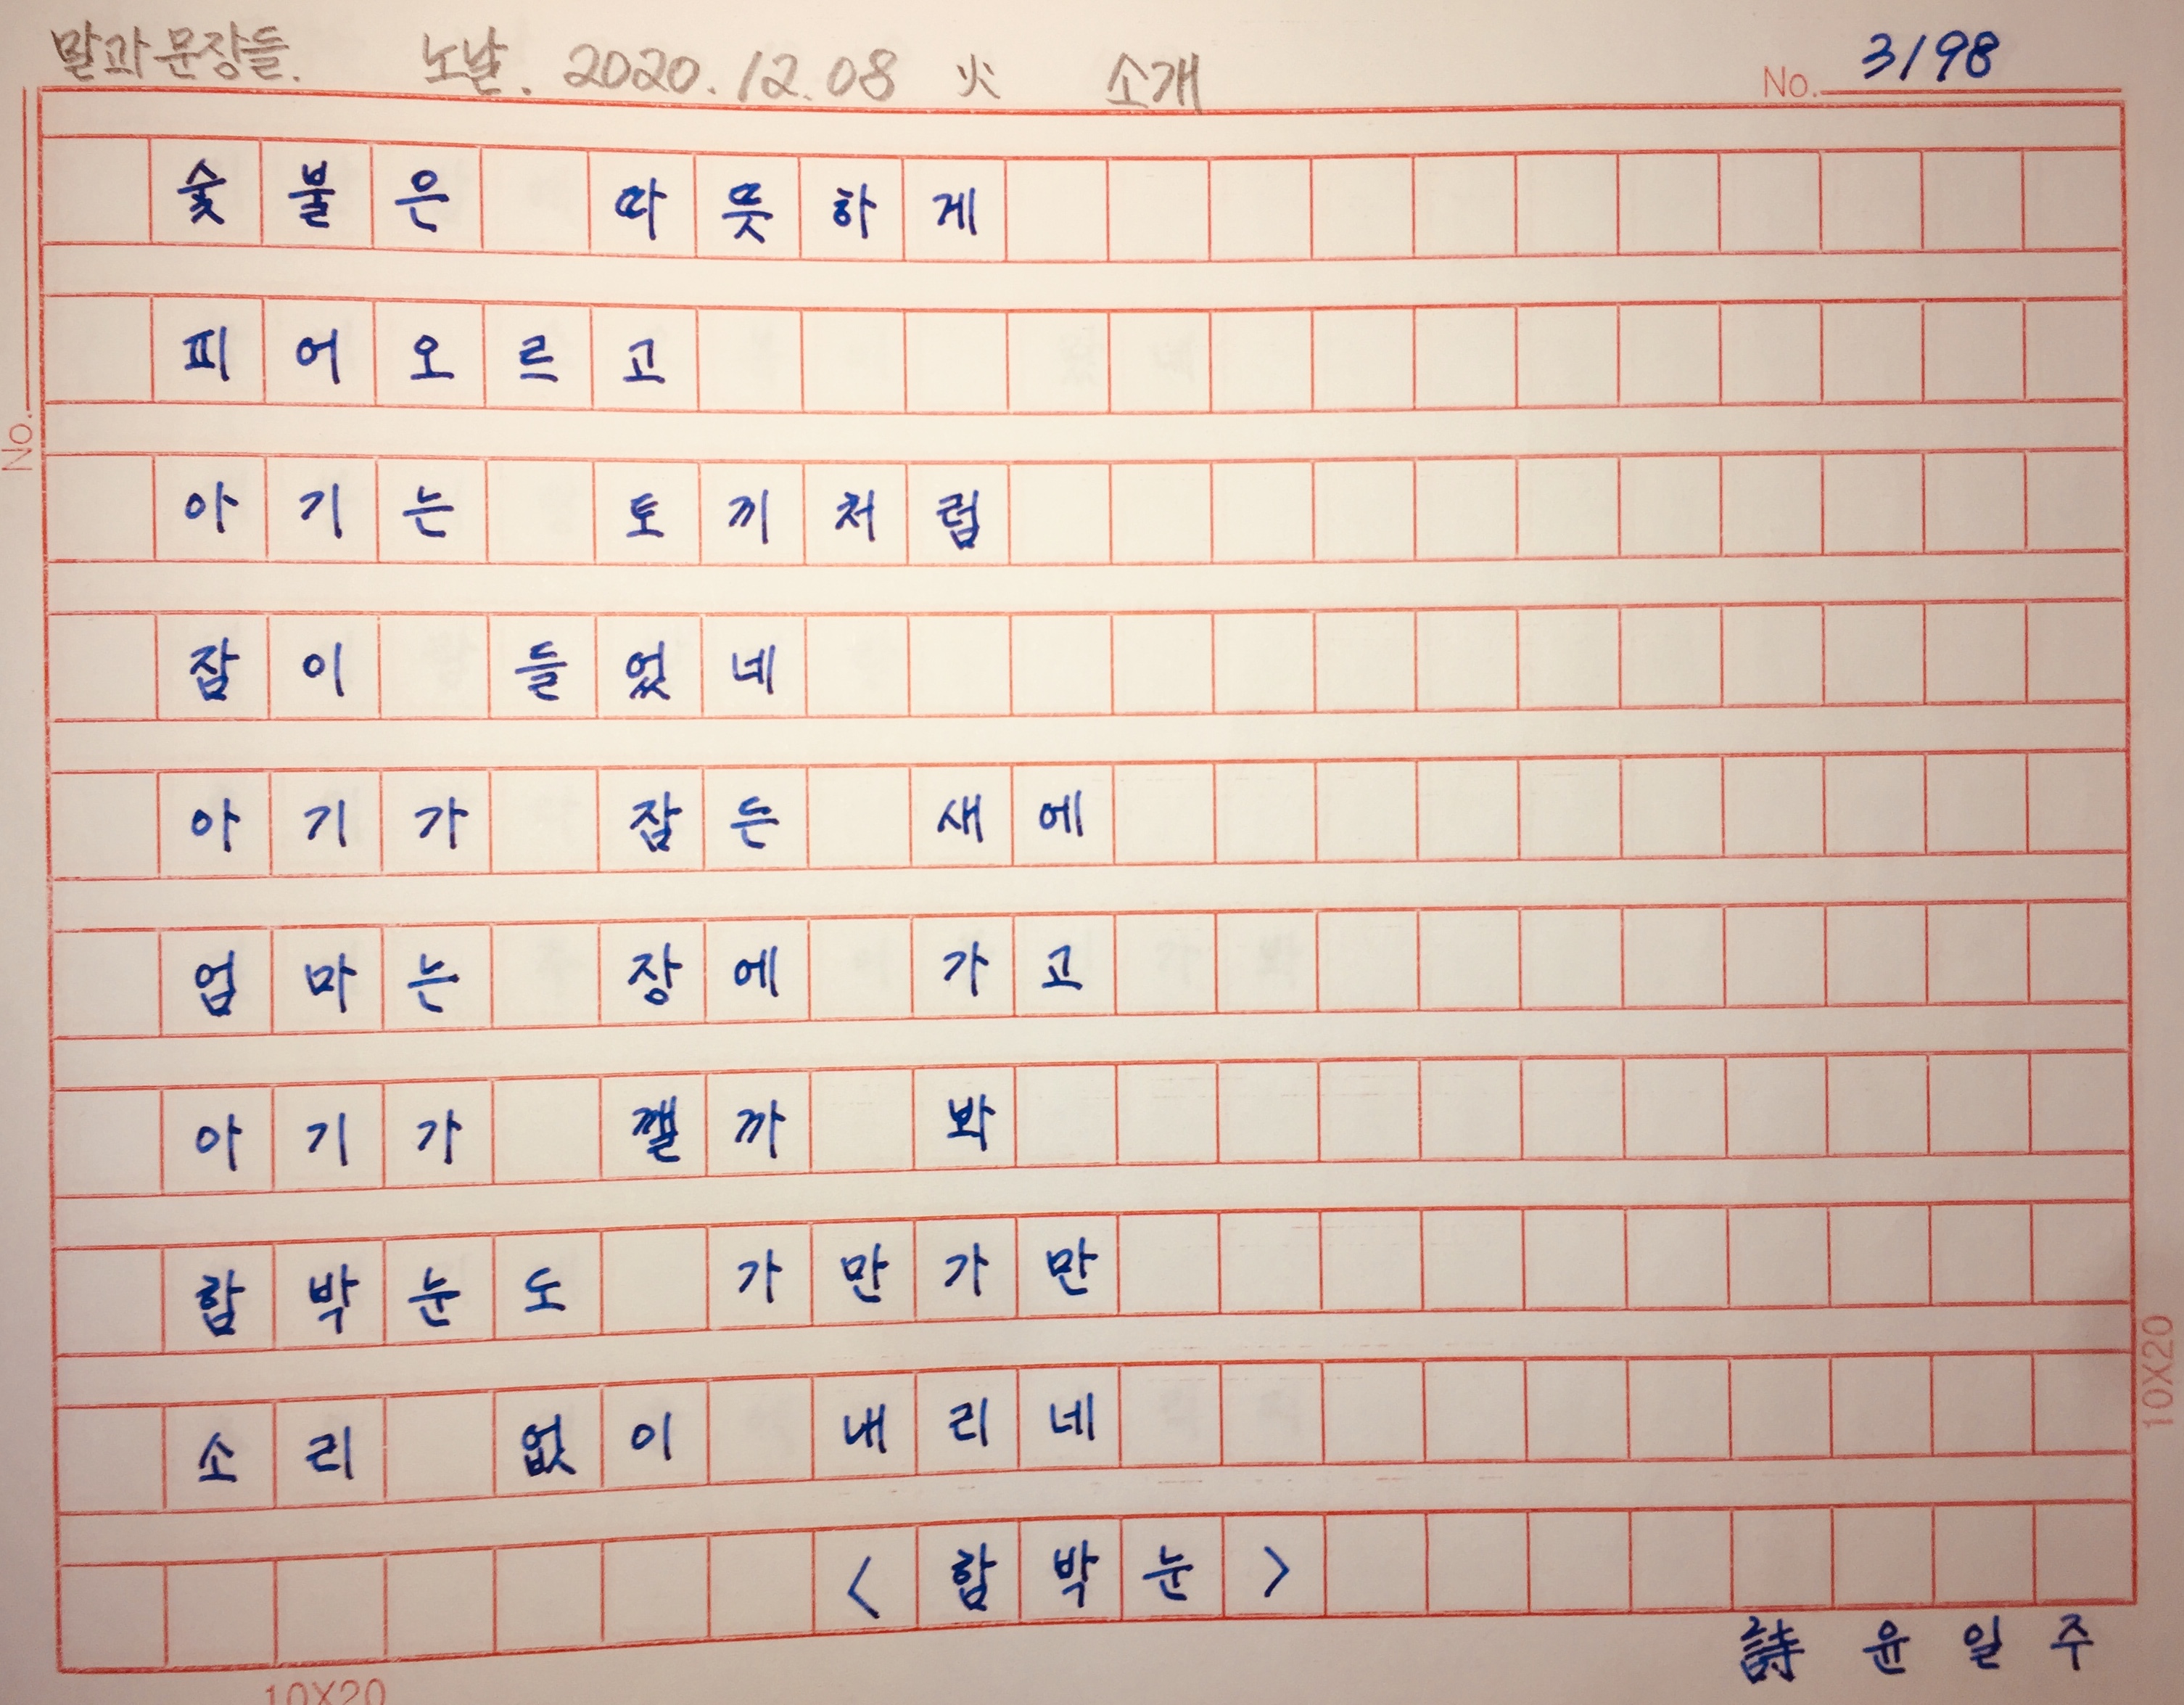 말과 문장들. 노날. 2020.12.08 火 소개
No. 3198
숯불은 따뜻하게
피어오르고
아기는 토끼처럼
잠이 들었네
아기가 잠든 새에
엄마는 장에 가고
아기가 깰까 봐
함박눈도 가만가만
소리 없이 내리네
<함박눈>
詩 윤일주
No.
10X20
10X20